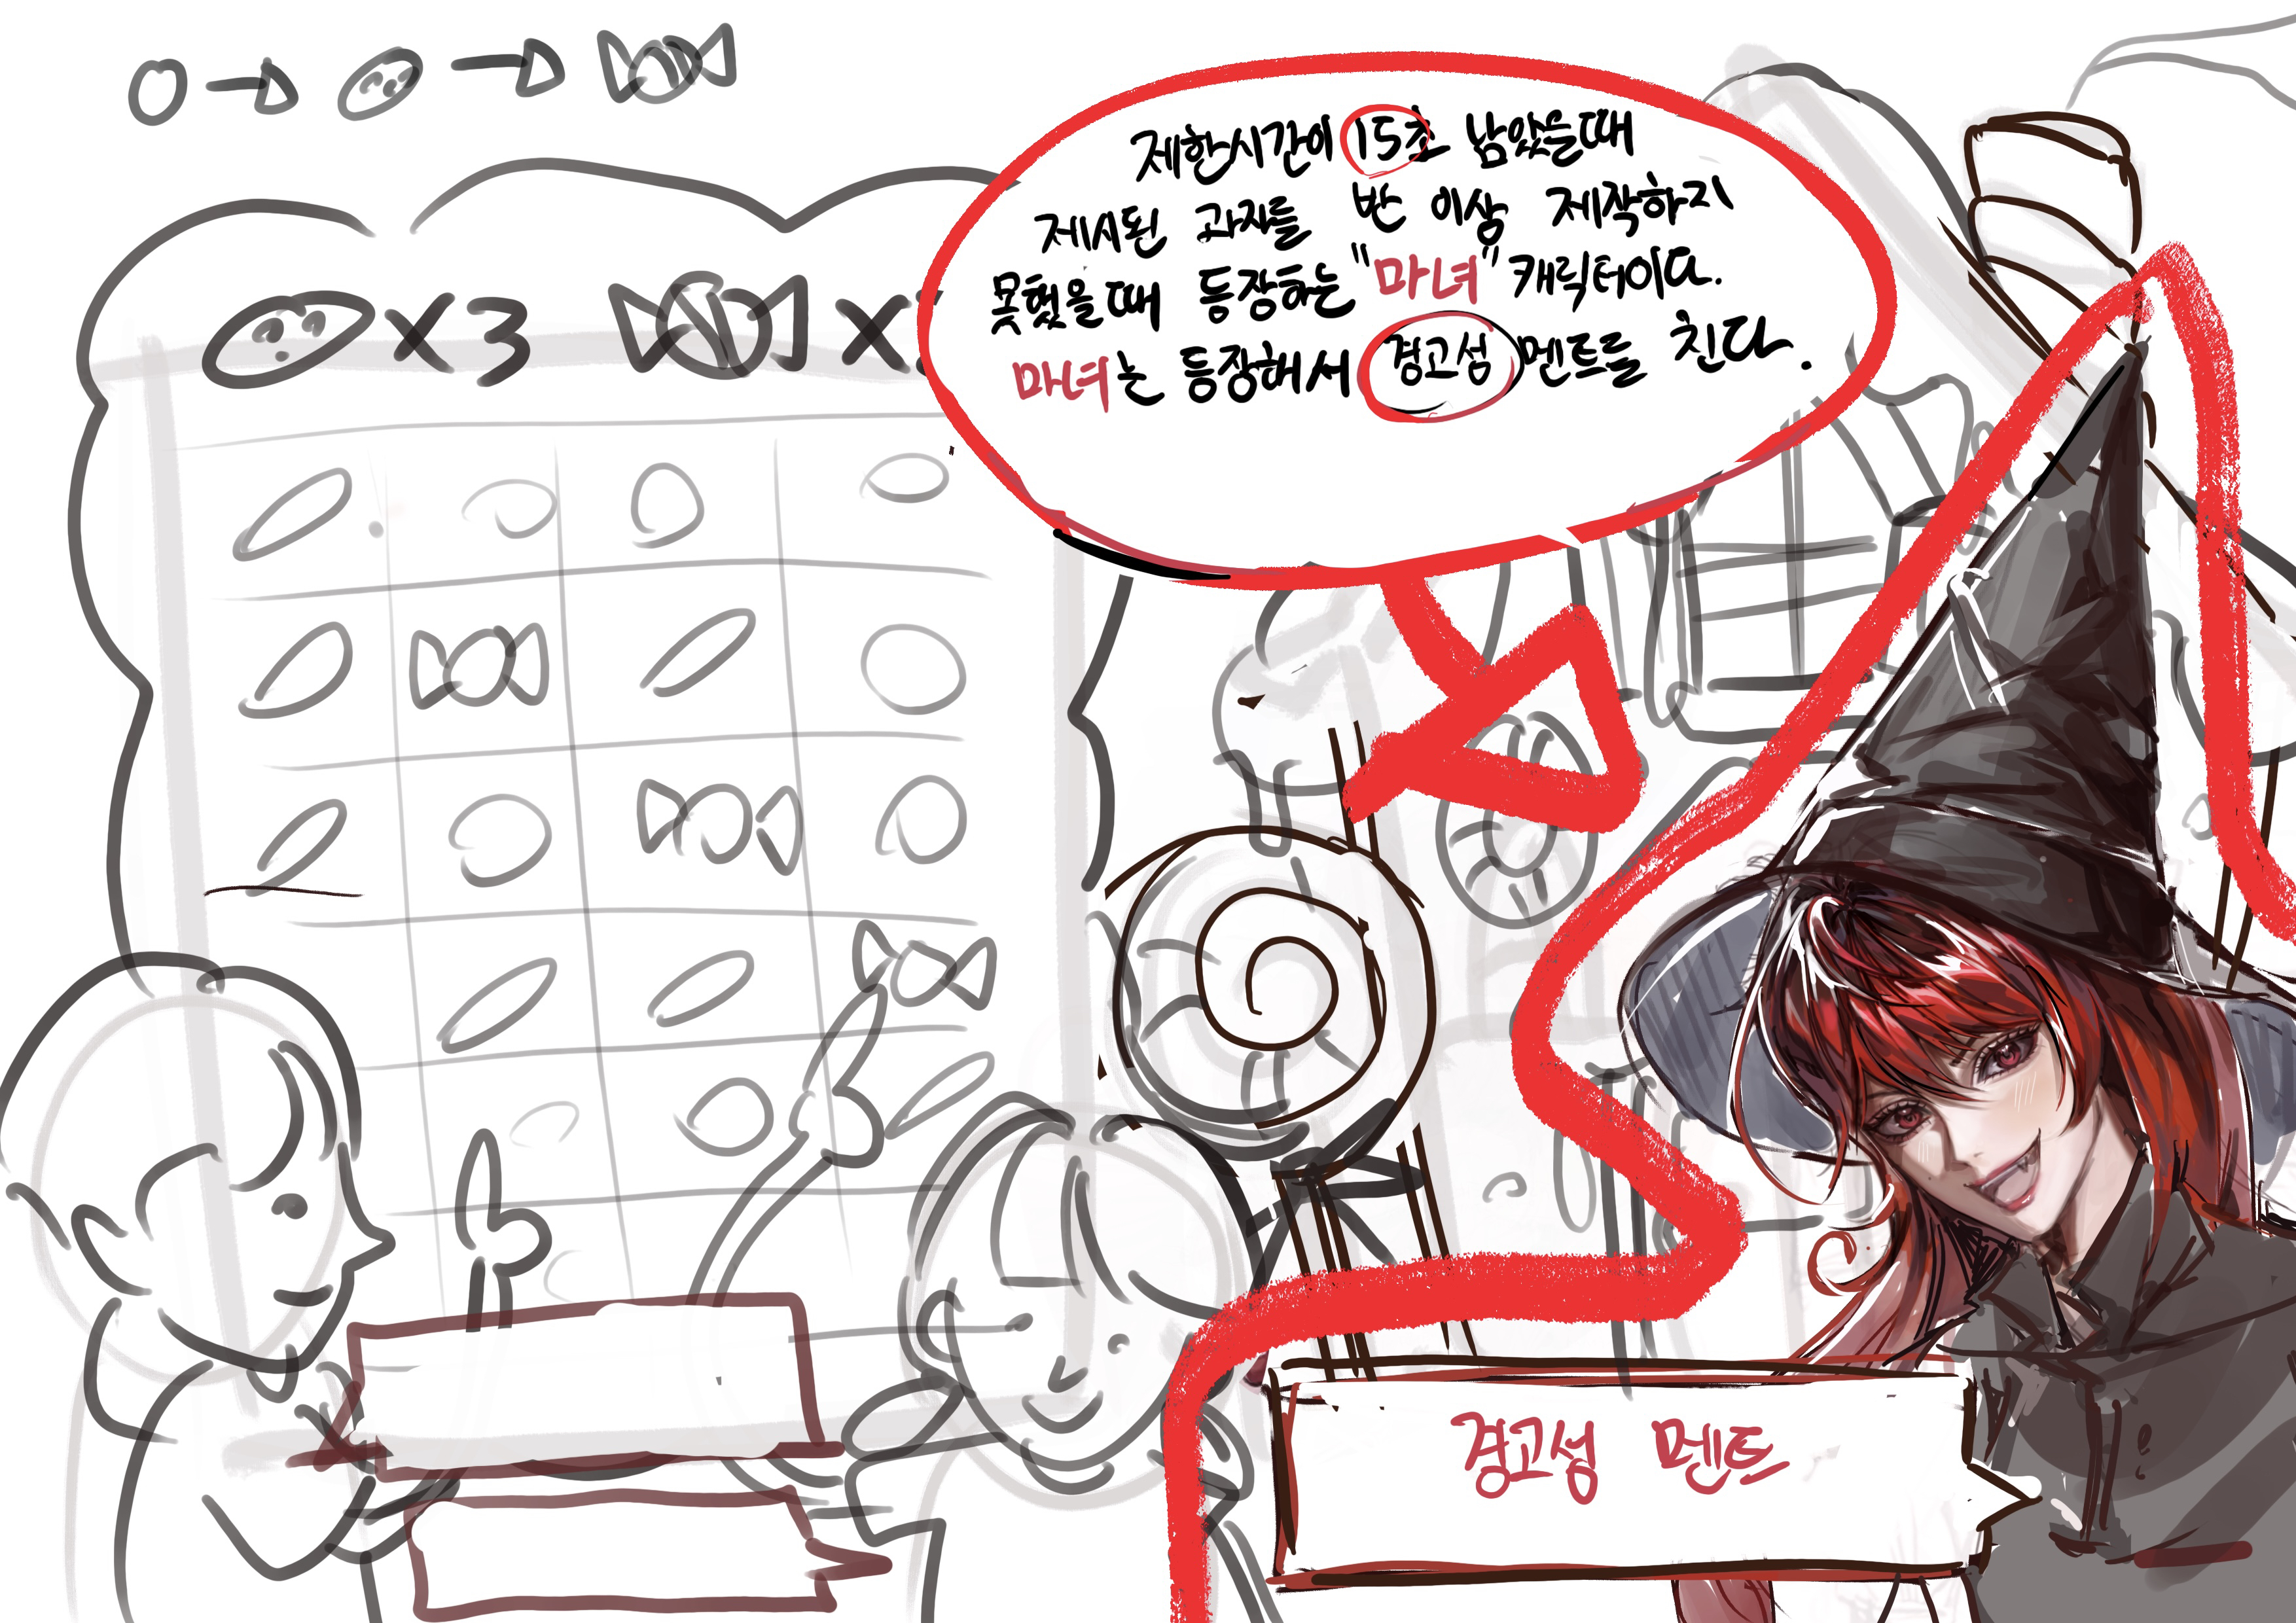 x3 x
제한시간이 15초 남았을때
제시된 과자를 반 이상 제작하지
못했을때 등장하는 "마녀" 캐릭터이다.
마녀는 등장해서 경고성 멘트를 친다.
경고성 멘트